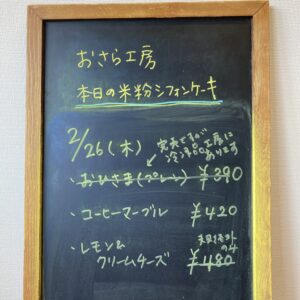 おさら工房
本日の米粉シフォンケーキ
2/26(木)
完売ですが
冷凍品工房に
あります
・おひさま(プレーン) ¥390
・コーヒーマーブル ¥420
・レモン&
クリームチーズ ¥480
のみ